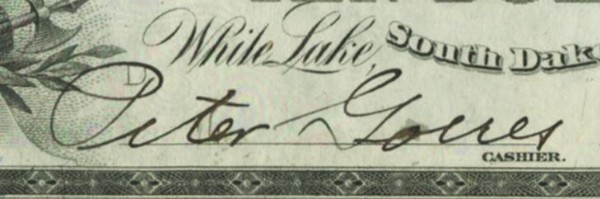 White Lake, South Dak
D
Peter Gorres
CASHIER.